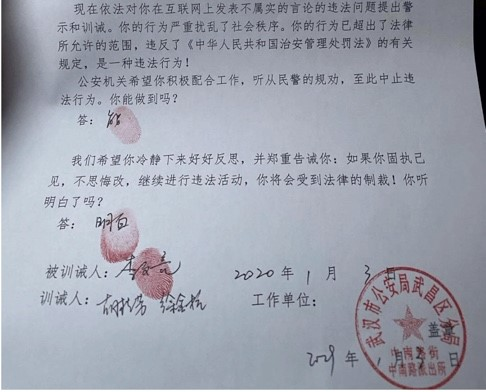 现在依法对你在互联网上发表不属实的言论的违法问题提出警
示和训诫。你的行为严重扰乱了社会秩序。你的行为已超出了法律
所允许的范围，违反了《中华人民共和国治安管理处罚法》的有关
规定，是一种违法行为！
公安机关希望你积极配合工作，听从民警的规劝，至此中止违
法行为。你能做到吗？
答：能
我们希望你冷静下来好好反思，并郑重告诫你：如果你固执己
见，不思悔改，继续进行违法活动，你将会受到法律的制裁！你听
明白了吗？
答：明白
被训诫人：李文亮 2020 年 1 月 3 日
训诫人： 工作单位：
武汉市公安局武昌区分局
中南路街
中南路派出所
盖章
年 1 月 3 日